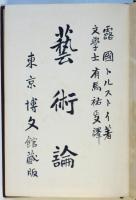 露國トルストイ著
文學士有馬祐政譯
藝術論
東京博文館藏版